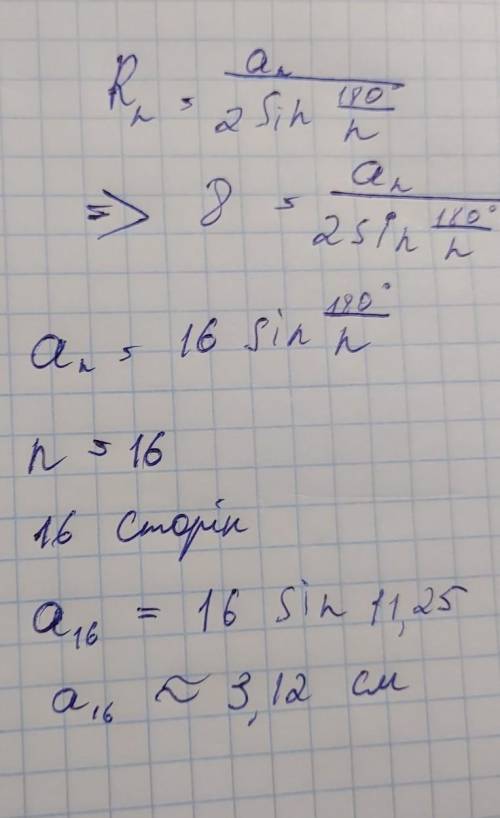 Rₙ = aₙ / 2 sin 180°/n
=> 8 = aₙ / 2 sin 180°/n
aₙ = 16 sin 180°/n
n = 16
16 сторін
a₁₆ = 16 sin 11,25
a₁₆ ≈ 3,12 см